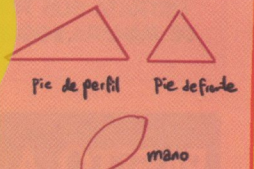 Pie de perfil
Pie de frente
mano